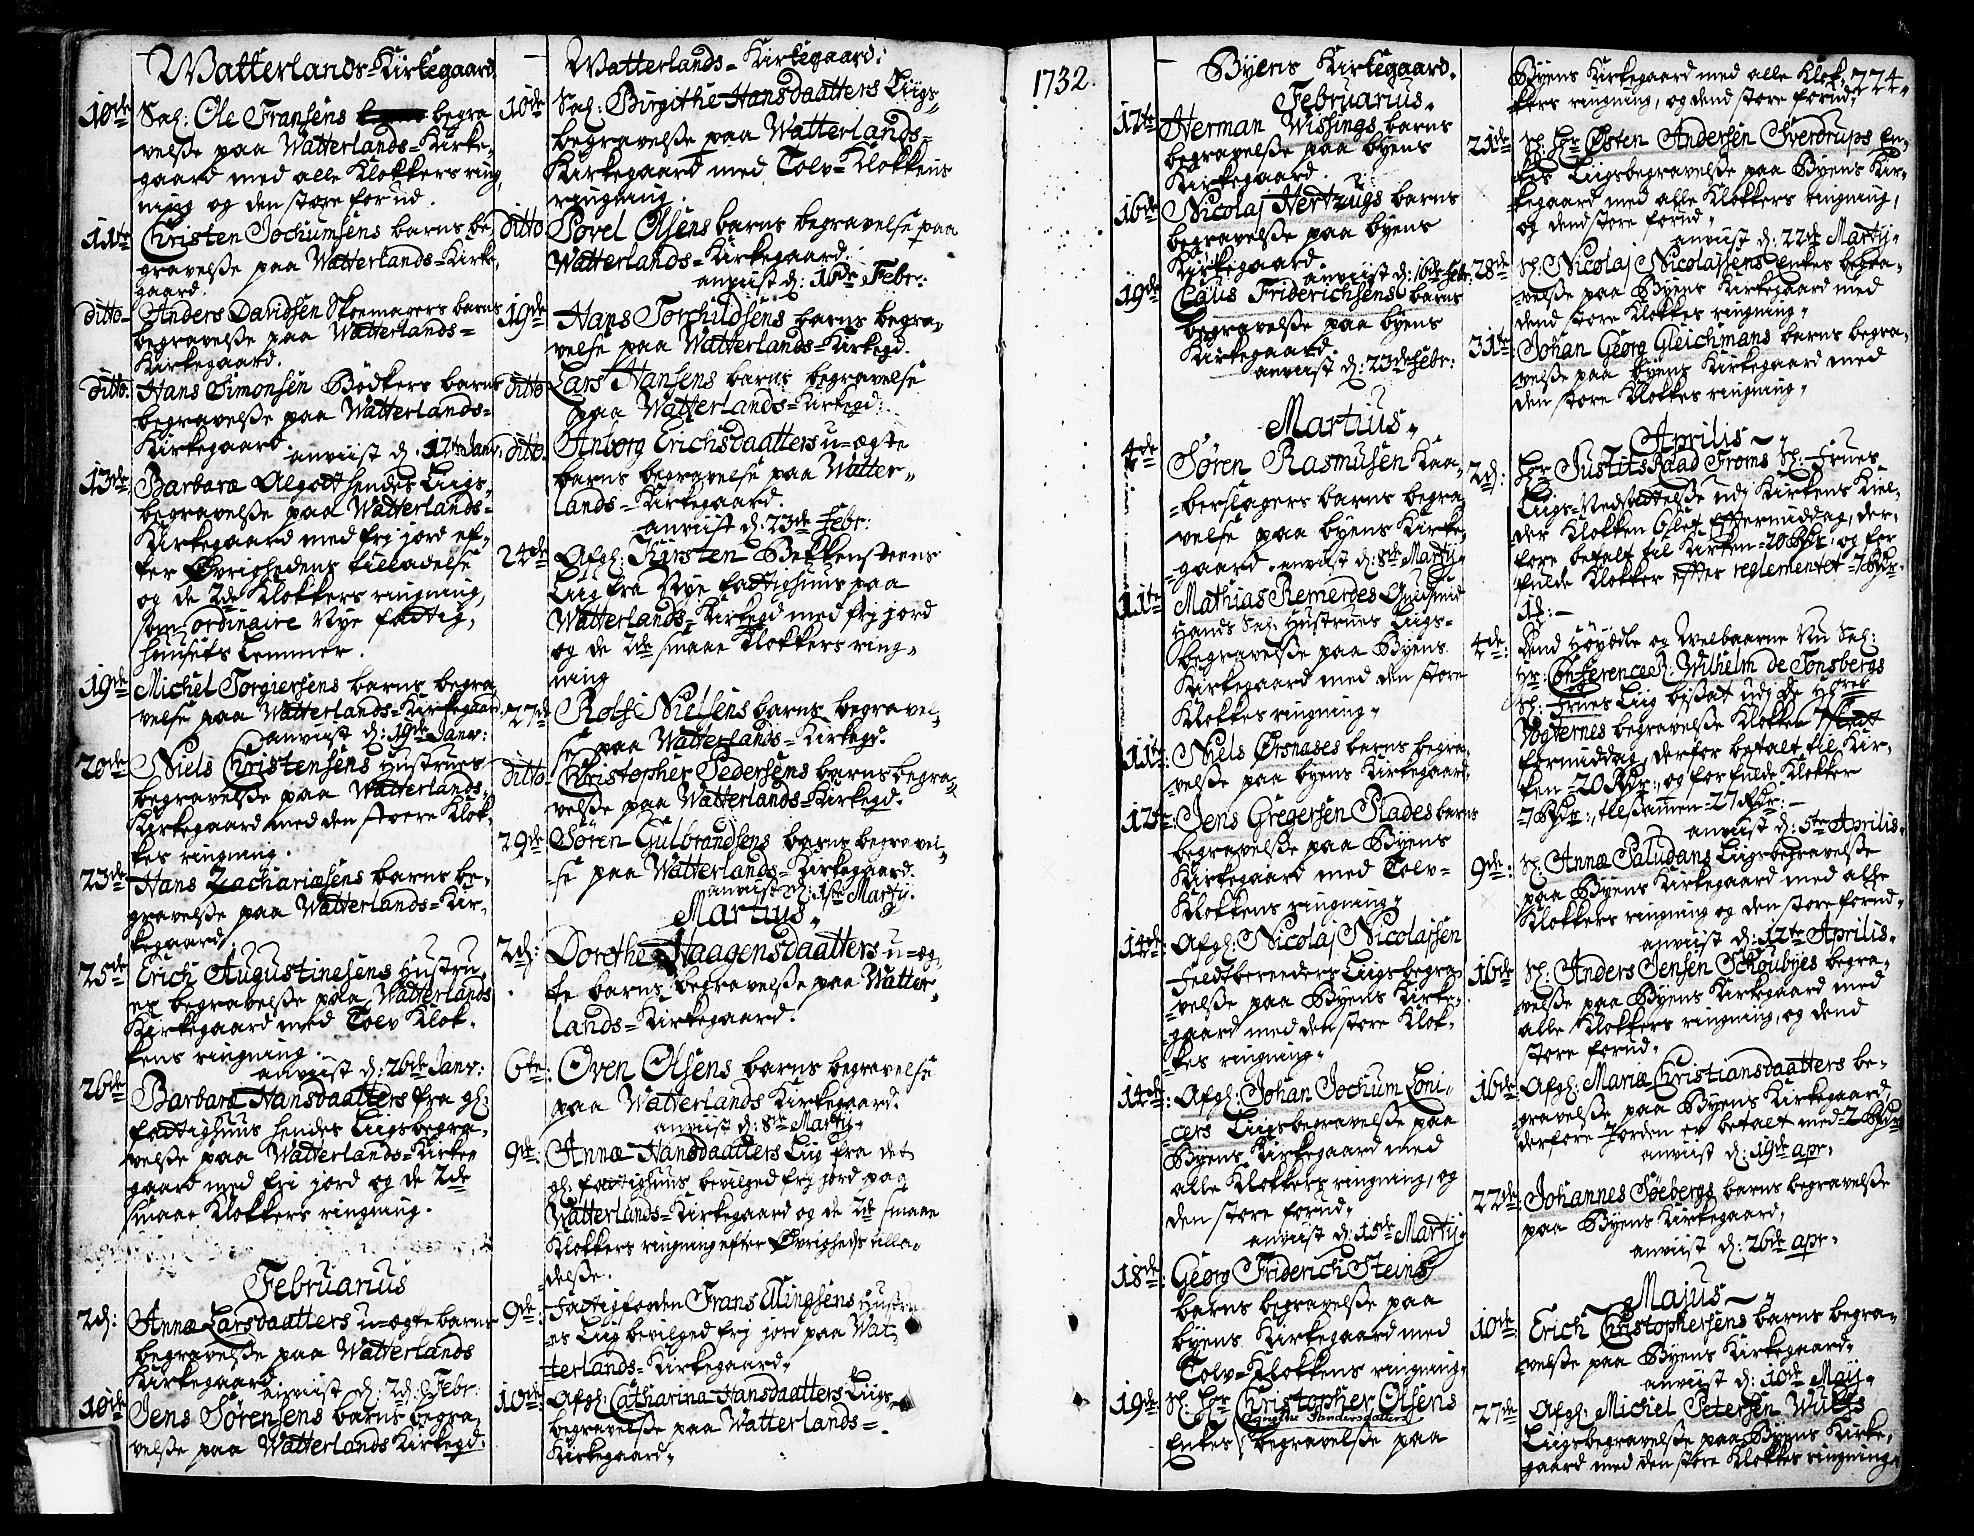 Watterlands=Kirkegaard
10de Sal: Ole Fransens begra
velsse paa Watterlands=Kirke,
gaard med alle Klokkers ring,
ning og den store forud.
11te Christen Jochumsens barns be,
gravelsse paa Watterlands=Kirke,
gaard.
ditto Anders Davidsen Skoemagers barns
begravelsse paa Watterlands=
Kirkegaard.
ditto Hans Simonsen Bödkers barns
begravelsse paa Watterlands=
Kirkegaard
anviist d: 12te Janv:
13de Barbara Algott hendes Liigs,
begravelsse paa Watterlands=
Kirkegaard med frj jord ef,
ter Øvrighedens tilladelse
og de 2de Klokkers ringning,
som ordinaire Nye fattig,
huusets Lemmer.
19de Michel Torgiersens barns begra,
velse paa Watterlands=Kirkegaar
anviist d: 19de Janv:
20de Niels Christensens Hustrues
begravelsse paa Watterlands,
Kirkegaard med den stoere Klok,
kes ringning.
23de Hans Zachariæsens barns be,
gravelsse paa Watterlands=Kir,
kegaard.
25de Erich Augustinesens Hustru,
es begravelsse paa Watterlands
Kirkegaard med Tolv Klok,
kens ringning.
anviist d: 26de Janv:
26de Barbara Hansdaatters fra gl:
fattighuus hendes Liigsbegra,
velsse paa Watterlands=Kirkeg
gaard med fri jord og de 2de
smaae Klokkers ringning.
Februarius
2d: Anna Larsdaatters u=ægte barns
begravelsse paa Watterlands
Kirkegaard
anviist d: 2d: Febr:
10de Jens Sørensens barns begra,
velsse paa Watterlands Kirkegd:
Watterlands=Kirkegaard:
10de Sal: Birgithe Hansdaatters Liigs=
begravelsse paa Watterlands=
Kirkegaard med Tolv=Klokkens
ringning.
ditto Povel Olsens barns begravelse paa
Watterlands=Kirkegaard.
anviist d: 16de Febr:
19de Hans Torchildsens barns begra,
velse paa Watterlands=Kirkegd.
ditto Lars Hansens barns begravelse
paa Watterlands=Kirkegd:
ditto. Anborg Erichsdaatters u=ægte
barns begravelse paa Watter,
lands=Kirkegaard.
anviist d: 23de Febr:
24de Afgl: Kirsten Bekkensteens
Liig fra Nye fattighuus paa
Watterlands=Kirkegd med frj jord
og de 2de smaae Klokkers ring,
ning
27de Rolf Nielsens barns begravel,
se paa Watterlands=Kirkegd.
ditto Christopher Pedersens barns begra,
velsse paa Watterlands=Kirkegd.
29de Søren Gulbrandsens barns begravel,
se paa Watterlands=Kirkegaard.
anviist d: 1ste Martij.
Martius.
2d: Dorethe Haagensdaatters u=æg,
te barns begravelsse paa Watter,
lands=Kirkegaard.
6te Oven Olsens barns begravelse
paa Watterlands Kirkegaard.
anviist d: 8de Martij.
9de: Anna Hansdaatters Liig fra det
gl: fattighuus bevilged frj jord paa
Watterlands=Kirkegaard og de 2de smaae
Klokkers ringning efter Øvrigheds tilla,
delsse.
9de: Fattigforden Frans Clingsens Hustru
es Liig bevilged frj jord paa Wat,
terlands=Kirkegaard.
10de: Afgl: Catharina Hansdaatters Liigs,
begravelsse paa Watterlands=
Kirkegaard.
1732.
Byens Kirkegaard.
Februarius.
12te Herman Wissings barns
begravelsse paa byens
Kirkegaard.
16de Nicolaj Hertzugs barns
begravelsse paa byens
Kirkegaard.
anviist d: 16de Febr:
19de Claus Friderichsens barns
begravelsse paa byens
Kirkegaard.
anviist d: 23de Febr:
Martius.
4de Søren Rasmusen Kaa,
berslagers barns begra,
velse paa byens Kirke,
gaard. anviist d: 8de Martij
11te Mathias Remerdes Guldsmid
Hands Sal: Hustrues Liigs=
begravelsse paa Byens
Kirkegaard med den store
Klokkes ringning.
11te: Niels Ørsnases barns begra,
velsse paa byens Kirkegaard.
12te: Jens Gregersen Plades barns
begravelsse paa Byens
Kirkegaard med Tolv=
Klokkens ringning.
14de: Afgl: Nicolaj Nicolajsen
Feldtbereeders Liigsbegra,
velsse paa Byens Kirke,
gaard med den store Klok,
kes ringning.
14de: Afgl: Johan Jochum Loni,
cers Liigsbegravelsse paa
Byens Kirkegaard med
alle Klokkers ringning, og
den store forud.
anviist d: 15de Martij.
18de: Georg Friderich Steins
barns begravelsse paa
byens Kirkegaard med
Tolv=Klokkens ringning.
19de: Sl: Hr Christopher Olsens
Agnethe Andersdatters
Enkes begravelsse paa
Byens Kirkegaard med alle Klok, 274.
kers ringning, og dend store forud.
21de: Sl: Hr Østen Andersen Sverdrups En,
kes Liigsbegravelsse paa Byens Kir,
kegaard med alle Klokkers ringning,
og dend store forud.
anviist d: 22de Martij.
28de: Sl: Nicolaj Nicolajsens Enkes begra,
velsse paa Byens Kirkegaard med
dend store Klokkes ringning.
31te: Johan Georg Gleichmans barns begra,
velsse paa byens Kirkegaard med
den store Klokkes ringning.
Aprilis.
2d: Hr Justits Raad Froms Sl: Frues
Liigs=Nedsættelse udj Kirkens Kiel,
der Klokken Eftermiddag, der,
fore betalt til Kirken=20 Rdr. og for
fulde Klokker effter reglementet=7 Rdr.
4de: Dend Höyædle og Welbaarne Nu Sal:
Hr: Conference R: Wilhelm de Tonsbergs
Sl: Frues Liig bijsat udj de
begravelse Klokken
formiddag, derfor betalt til Kir,
ken=20 Rdr:, og for fulde Klokker
7 Rdr:, tilsammen=27 Rdr:
anviist d: 5te Aprilis.
9de: Sl: Anna Paludans Liigsbegravelsse
paa Byens Kirkegaard med alle
Klokkers ringning og den store forud.
anviist d: 12te Aprilis.
16de Sl: Anders Jensen Schoubyes begra,
velsse paa Byens Kirkegaard med
alle Klokkers ringning, og dend
store forud.
16de: Afgl: Maria Christiansdaatters be,
gravelsse paa Byens Kirkegaard,
derfore Jorden er betalt med=2 Rdr
anviist d: 19de apr.
22de: Johannes Søebergs barns begravelsse
paa Byens Kirkegaard.
anviist d: 26de apr.
Majus.
10de: Erich Christophersens barns begra,
velsse paa Byens Kirkegaard.
anviist d: 10de Maij.
27de: Afgl: Michel Petersen Wulfs
Liigsbegravelsse paa Byens Kirke,
gaard med den store Klokkes ringning.